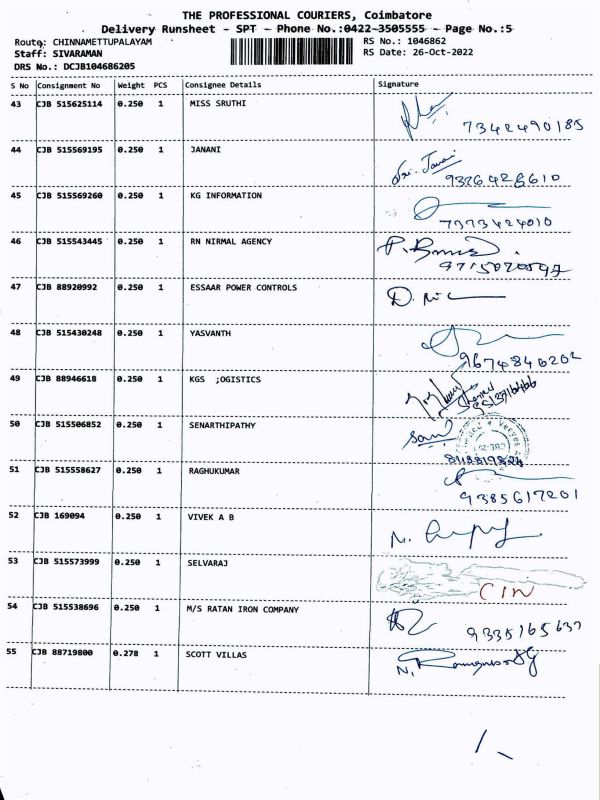 THE PROFESSIONAL COURIERS, Coimbatore
Delivery Runsheet - SPT - Phone No.:0422-3505555 - Page No.:5
Route: CHINNAMETTUPALAYAM
RS No.: 1046862
Staff: SIVARAMAN
RS Date: 26-Oct-2022
DRS No.: DCJB104686205
S No Consignment No Weight PCS Consignee Details Signature
43 CJB 515625114 0.250 1 MISS SRUTHI
7342490185
44 CJB 515569195 0.250 1 JANANI
9326428610
45 CJB 515569260 0.250 1 KG INFORMATION
7373424010
46 CJB 515543445 0.250 1 RN NIRMAL AGENCY
47 CJB 88920992 0.250 1 ESSAAR POWER CONTROLS
48 CJB 515430248 0.250 1 YASVANTH
9674846202
49 CJB 88946618 0.250 1 KGS ;OGISTICS
50 CJB 515506852 0.250 1 SENARTHIPATHY
51 CJB 515558627 0.250 1 RAGHUKUMAR
9385617201
52 CJB 169094 0.250 1 VIVEK A B
53 CJB 515573999 0.250 1 SELVARAJ
CIN
54 CJB 515538696 0.250 1 M/S RATAN IRON COMPANY
9335165637
55 CJB 88719800 0.278 1 SCOTT VILLAS